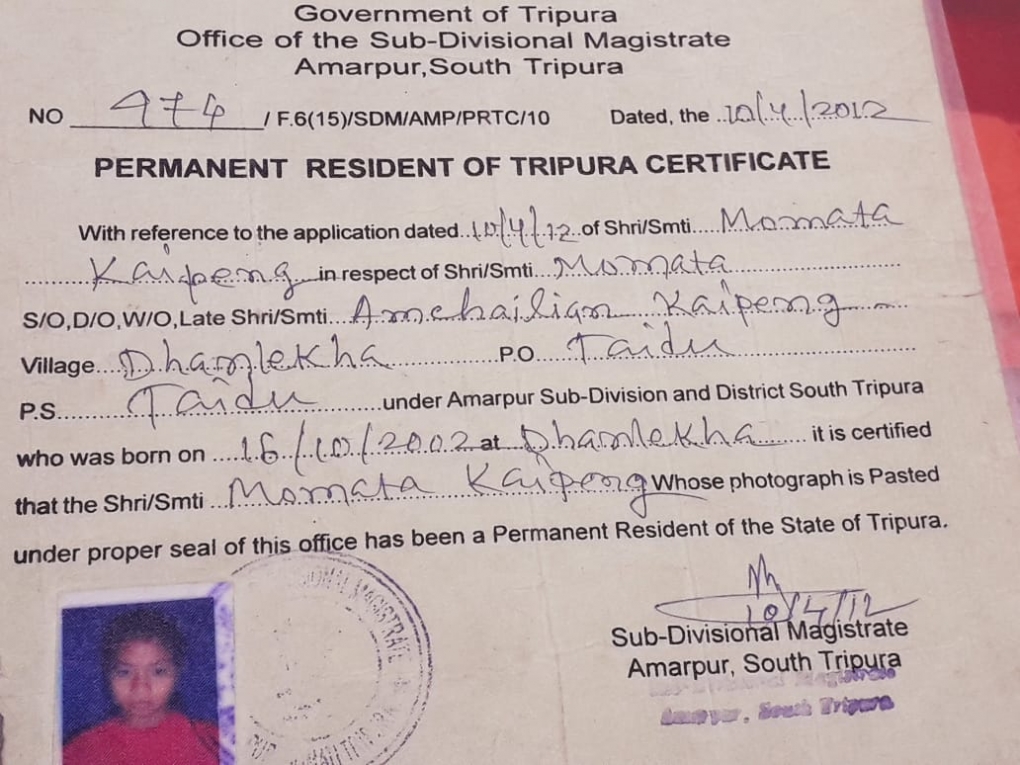 Government of Tripura
Office of the Sub-Divisional Magistrate
Amarpur,South Tripura
NO 974 / F.6(15)/SDM/AMP/PRTC/10 Dated, the 10/4/2012
PERMANENT RESIDENT OF TRIPURA CERTIFICATE
With reference to the application dated..10/4/12.of Shri/Smti....Momata
Kaipeng in respect of Shri/Smti...Momata
S/O,D/O,W/O,Late Shri/Smti...Amchailian Kaipeng
Village....Dhanlekha P.O Taidu
P.S. Taidu under Amarpur Sub-Division and District South Tripura
who was born on ....16/10/2002 at Dhanlekha it is certified
that the Shri/Smti ...Momata Kaipeng Whose photograph is Pasted
under proper seal of this office has been a Permanent Resident of the State of Tripura.
10/4/12
Sub-Divisional Magistrate
Amarpur, South Tripura
Sub-Divisional Magistrate
Amarpur, South Tripura
MAGISTRATE